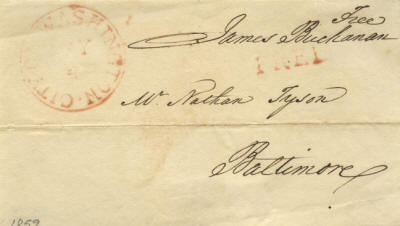 WASHINGTON CITY
Free
James Buchanan
FREE
Mr. Nathan Tyson
Baltimore